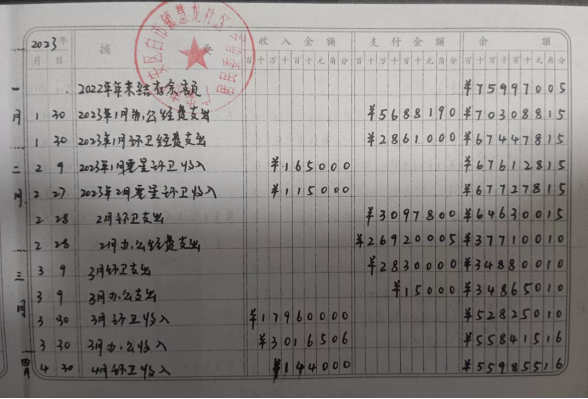 2023年 摘 收入金额 支付金额 余额
月 日 百十万千百十元角分 百十万千百十元角分 百十万千百十元角分
一月 2022年年末结存余额 ¥75997005
1 30 2023年1月办公经费支出 ¥5688190 ¥70308815
1 30 2023年1月环卫经费支出 ¥2861000 ¥67447815
二月 2 9 2023年1月零星环卫收入 ¥165000 ¥67612815
2 27 2023年2月零星环卫收入 ¥115000 ¥67727815
2 28 2月环卫支出 ¥3097800 ¥64630015
2 28 2月办公经费支出 ¥26920005 ¥37710010
三月 3 9 3月环卫支出 ¥2830000 ¥34880010
3 9 3月办公支出 ¥15000 ¥34865010
3 30 3月环卫收入 ¥17960000 ¥52825010
3 30 3月办公收入 ¥3016506 ¥55841516
四月 4 30 4月环卫收入 ¥144000 ¥55985516